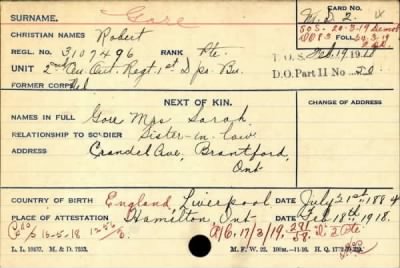 SURNAME. Gore CARD NO.
CHRISTIAN NAMES Robert M.D. 2.
REGL. No. 3107496 RANK Pte. SOS. 20-3-19 Demob
UNIT 2nd Cen. Ont. Regt. 1st Dpo. Bn. T.O.S. Feb. 19. 1918
D.O. Part II No. 50
FORMER CORPS Nil
NEXT OF KIN. CHANGE OF ADDRESS
NAMES IN FULL Gore Mrs Sarah,
RELATIONSHIP TO SOLDIER Sister-in-law
ADDRESS Crandel Ave, Brantford,
Ont
COUNTRY OF BIRTH England, Liverpool DATE July 21st 1884
PLACE OF ATTESTATION Hamilton, Ont DATE Feb. 18th 1918.
16-5-18 17/3/19
L. L. 19837. M. & D. 7253. M. F. W. 22.